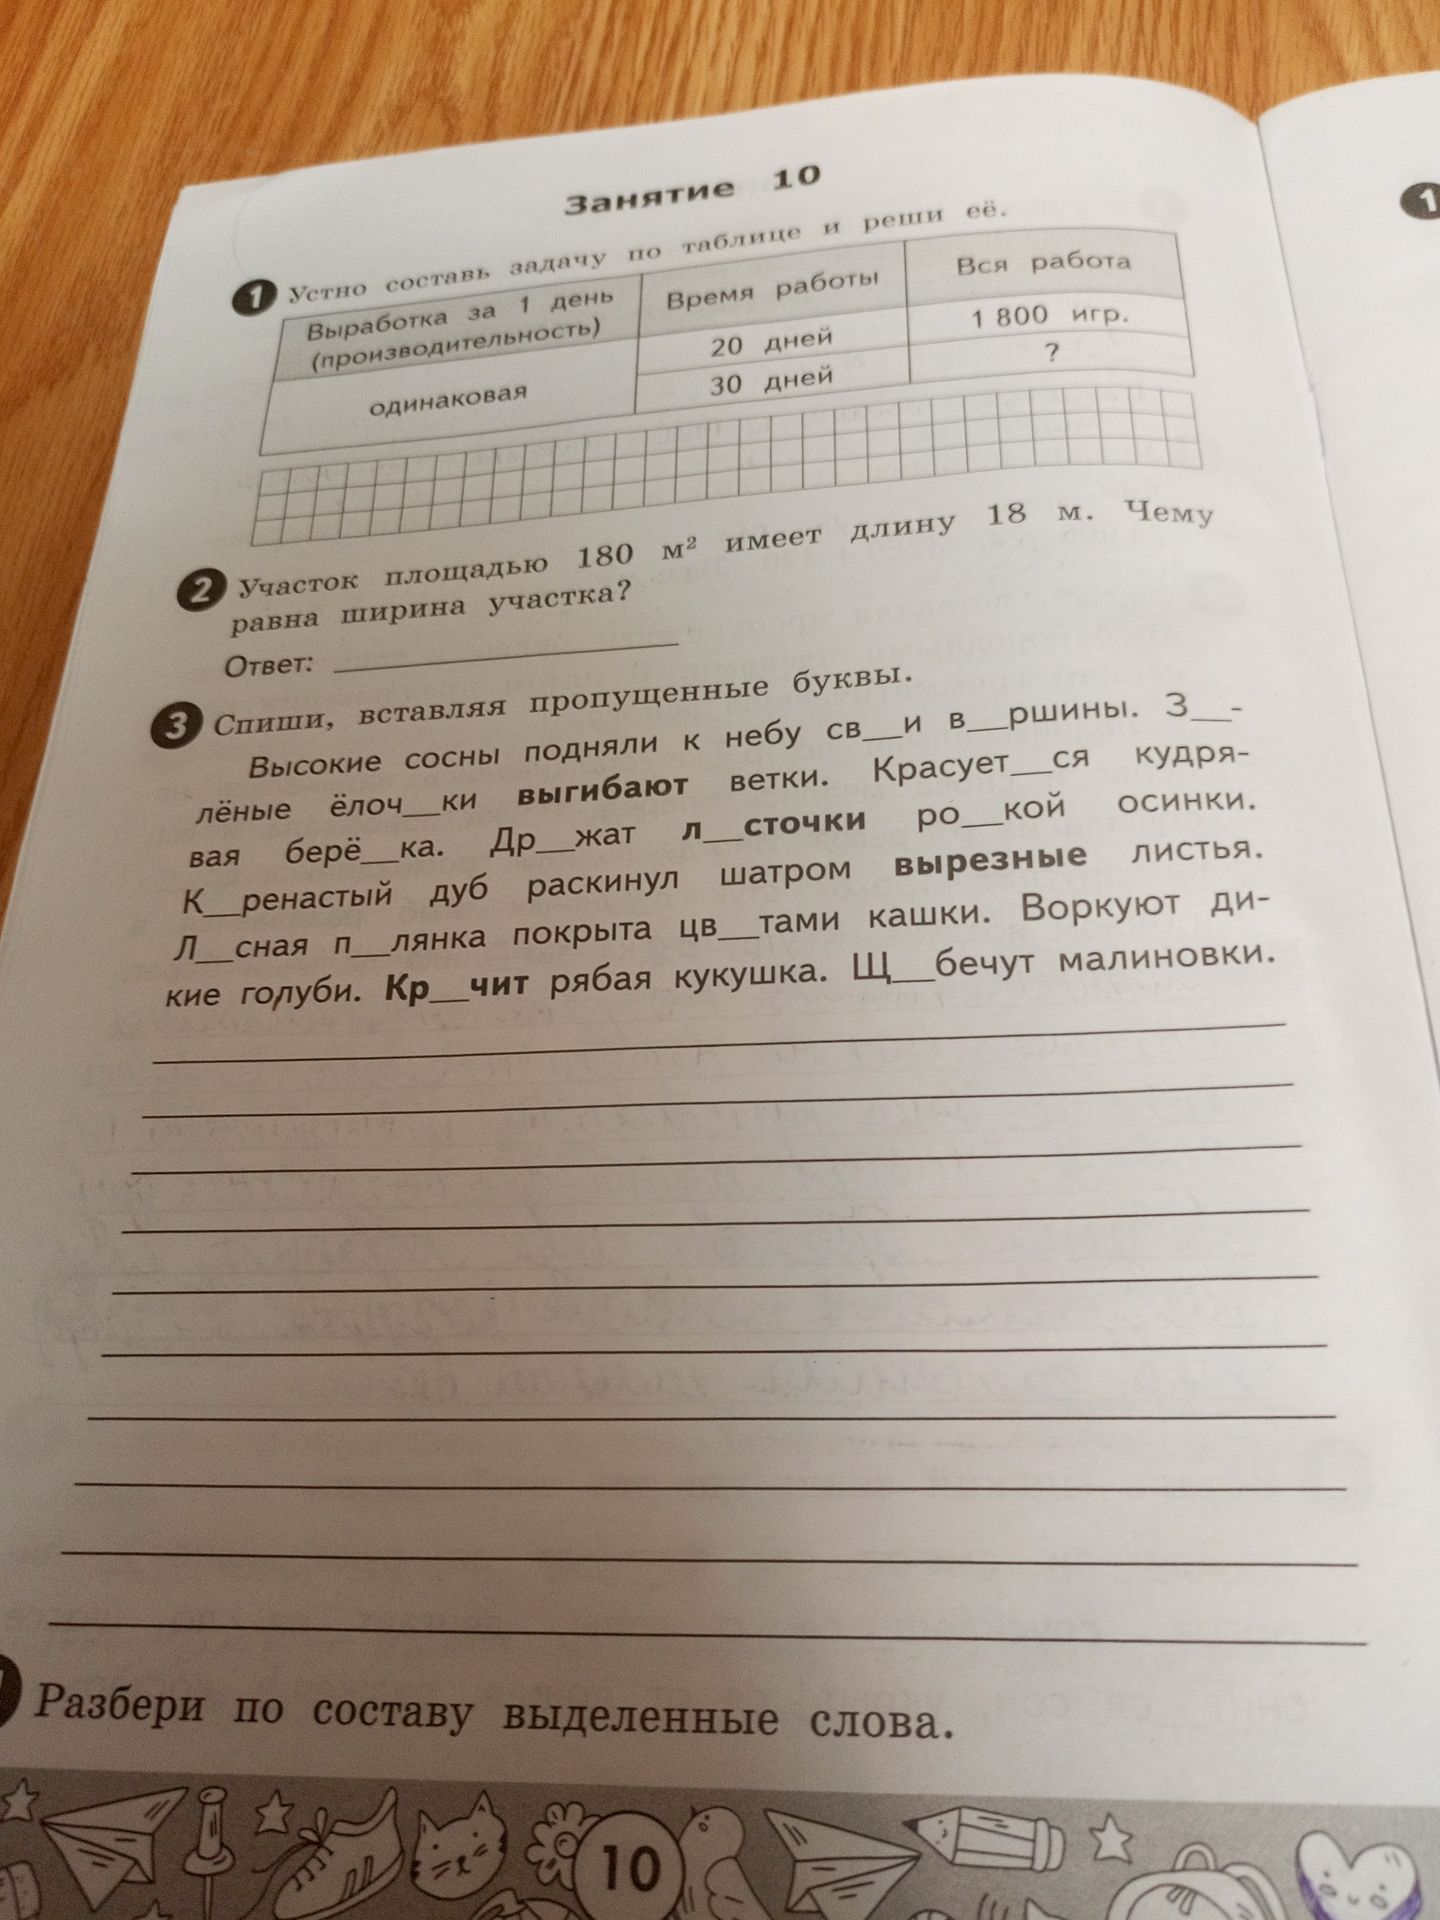 Занятие 10
1 Устно составь задачу по таблице и реши её.
Выработка за 1 день (производительность) Время работы Вся работа
одинаковая 20 дней 1 800 игр.
30 дней ?
2 Участок площадью 180 м² имеет длину 18 м. Чему
равна ширина участка?
Ответ: ____
3 Спиши, вставляя пропущенные буквы.
Высокие сосны подняли к небу св__и в__ршины. З__-
лёные ёлоч__ки выгибают ветки. Красует__ся кудря-
вая берё__ка. Др__жат л__сточки ро__кой осинки.
К__ренастый дуб раскинул шатром вырезные листья.
Л__сная п__лянка покрыта цв__тами кашки. Воркуют ди-
кие голуби. Кр__чит рябая кукушка. Щ__бечут малиновки.
Разбери по составу выделенные слова.
10
1